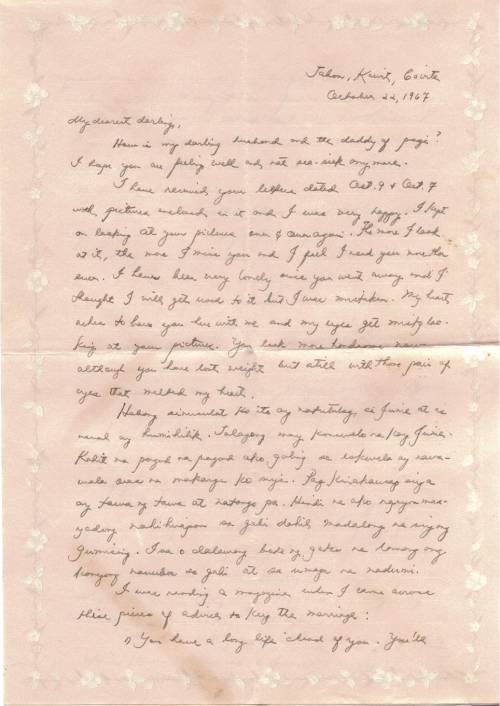 October 22, 1967
My dearest darling,
How is my darling husband and the daddy of
I hope you are feeling well and not sea-sick any more.
I have received your letters dated Oct. 9 & Oct. 7
with pictures enclosed in it and I was very happy. I kept
on looking at your pictures over & over again. The more I look
at it, the more I miss you and I feel I need you more than
ever. I have been very lonely since you went away and I
thought I will get used to it but I was mistaken. My heart
aches to have you here with me and my eyes get misty loo-
king at your pictures. You look more handsome now
although you have lost weight but still with those pair of
eyes that melted my heart.
Habang sinusulat ko ito ay natutulog si Junie at
ay humihilik. Talagang may na kay Junie.
Kahit na pagod na pagod ako galing sa eskwela ay nawa-
wala na makarga ko siya. Pag kinakausap siya
ay tawa ng tawa at pa. Hindi na ako ngayon mas-
yadong nahihirapan sa gabi dahil madalang na siyang
gumising. I sa o dalawang beses ng gatas na lamang ang
kanyang sa gabi at sa umaga na
I was reading a magazine when I came across
these pieces of advice to keep the marriage :
1) You have a long life ahead of you. You'll